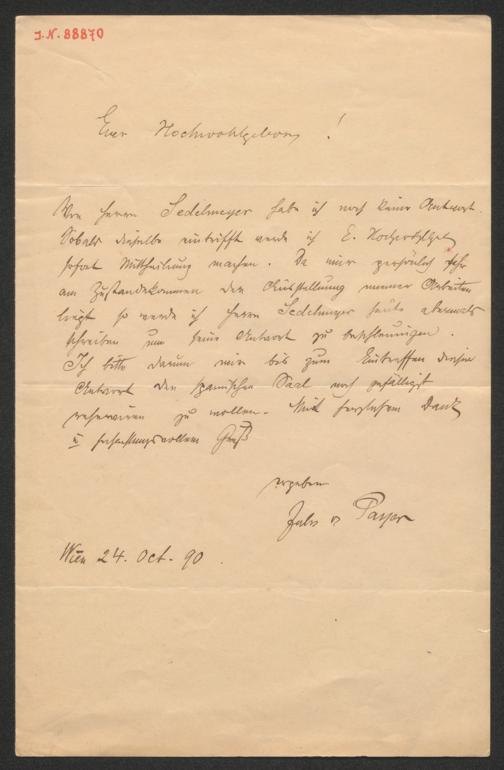 J.N. 88870
Euer Hochwohlgeboren!
Von Herrn Sedelmeyer habe ich noch keine Antwort.
Sobald dieselbe eintrifft werde ich E. Hochwohlgeb
sofort Mittheilung machen. Da mir persönlich sehr
am Zustandekommen der Ausstellung meiner Arbeiten
liegt so werde ich Herrn Sedelmeyer heute abermals
schreiben um seine Antwort zu beschleunigen.
Ich bitte darum mir bis zum Eintreffen dieser
Antwort den spanischen Saal noch gefälligst
reserviren zu wollen. Mit herzlichem Dank
u hochachtungsvollem Gruß
ergeben
Wien 24. Oct. 90